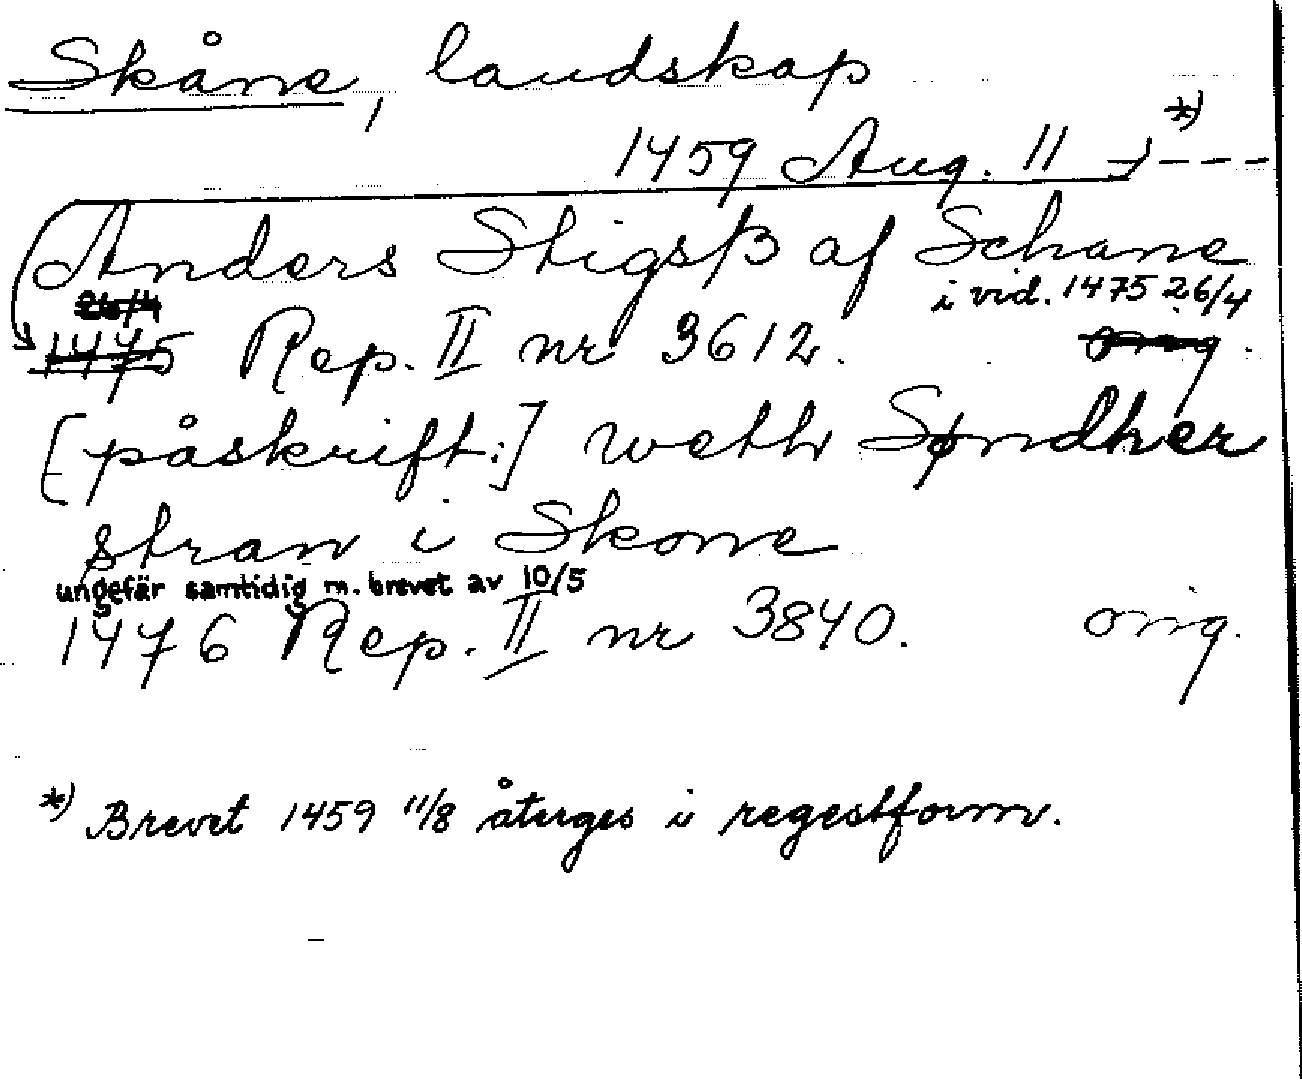 Skåne, landskap
1459 Aug. 11 *)
Anders Stigsß af Schane
i vid. 1475 26/4
26/4
1475 Rep. II nr 3612. orig.
[påskrift:] weth Søndher
stran i Skone
ungefär samtidig m. brevet av 10/5
1476 Rep. II nr 3840. orig.
*) Brevet 1459 11/8 återges i regestform.